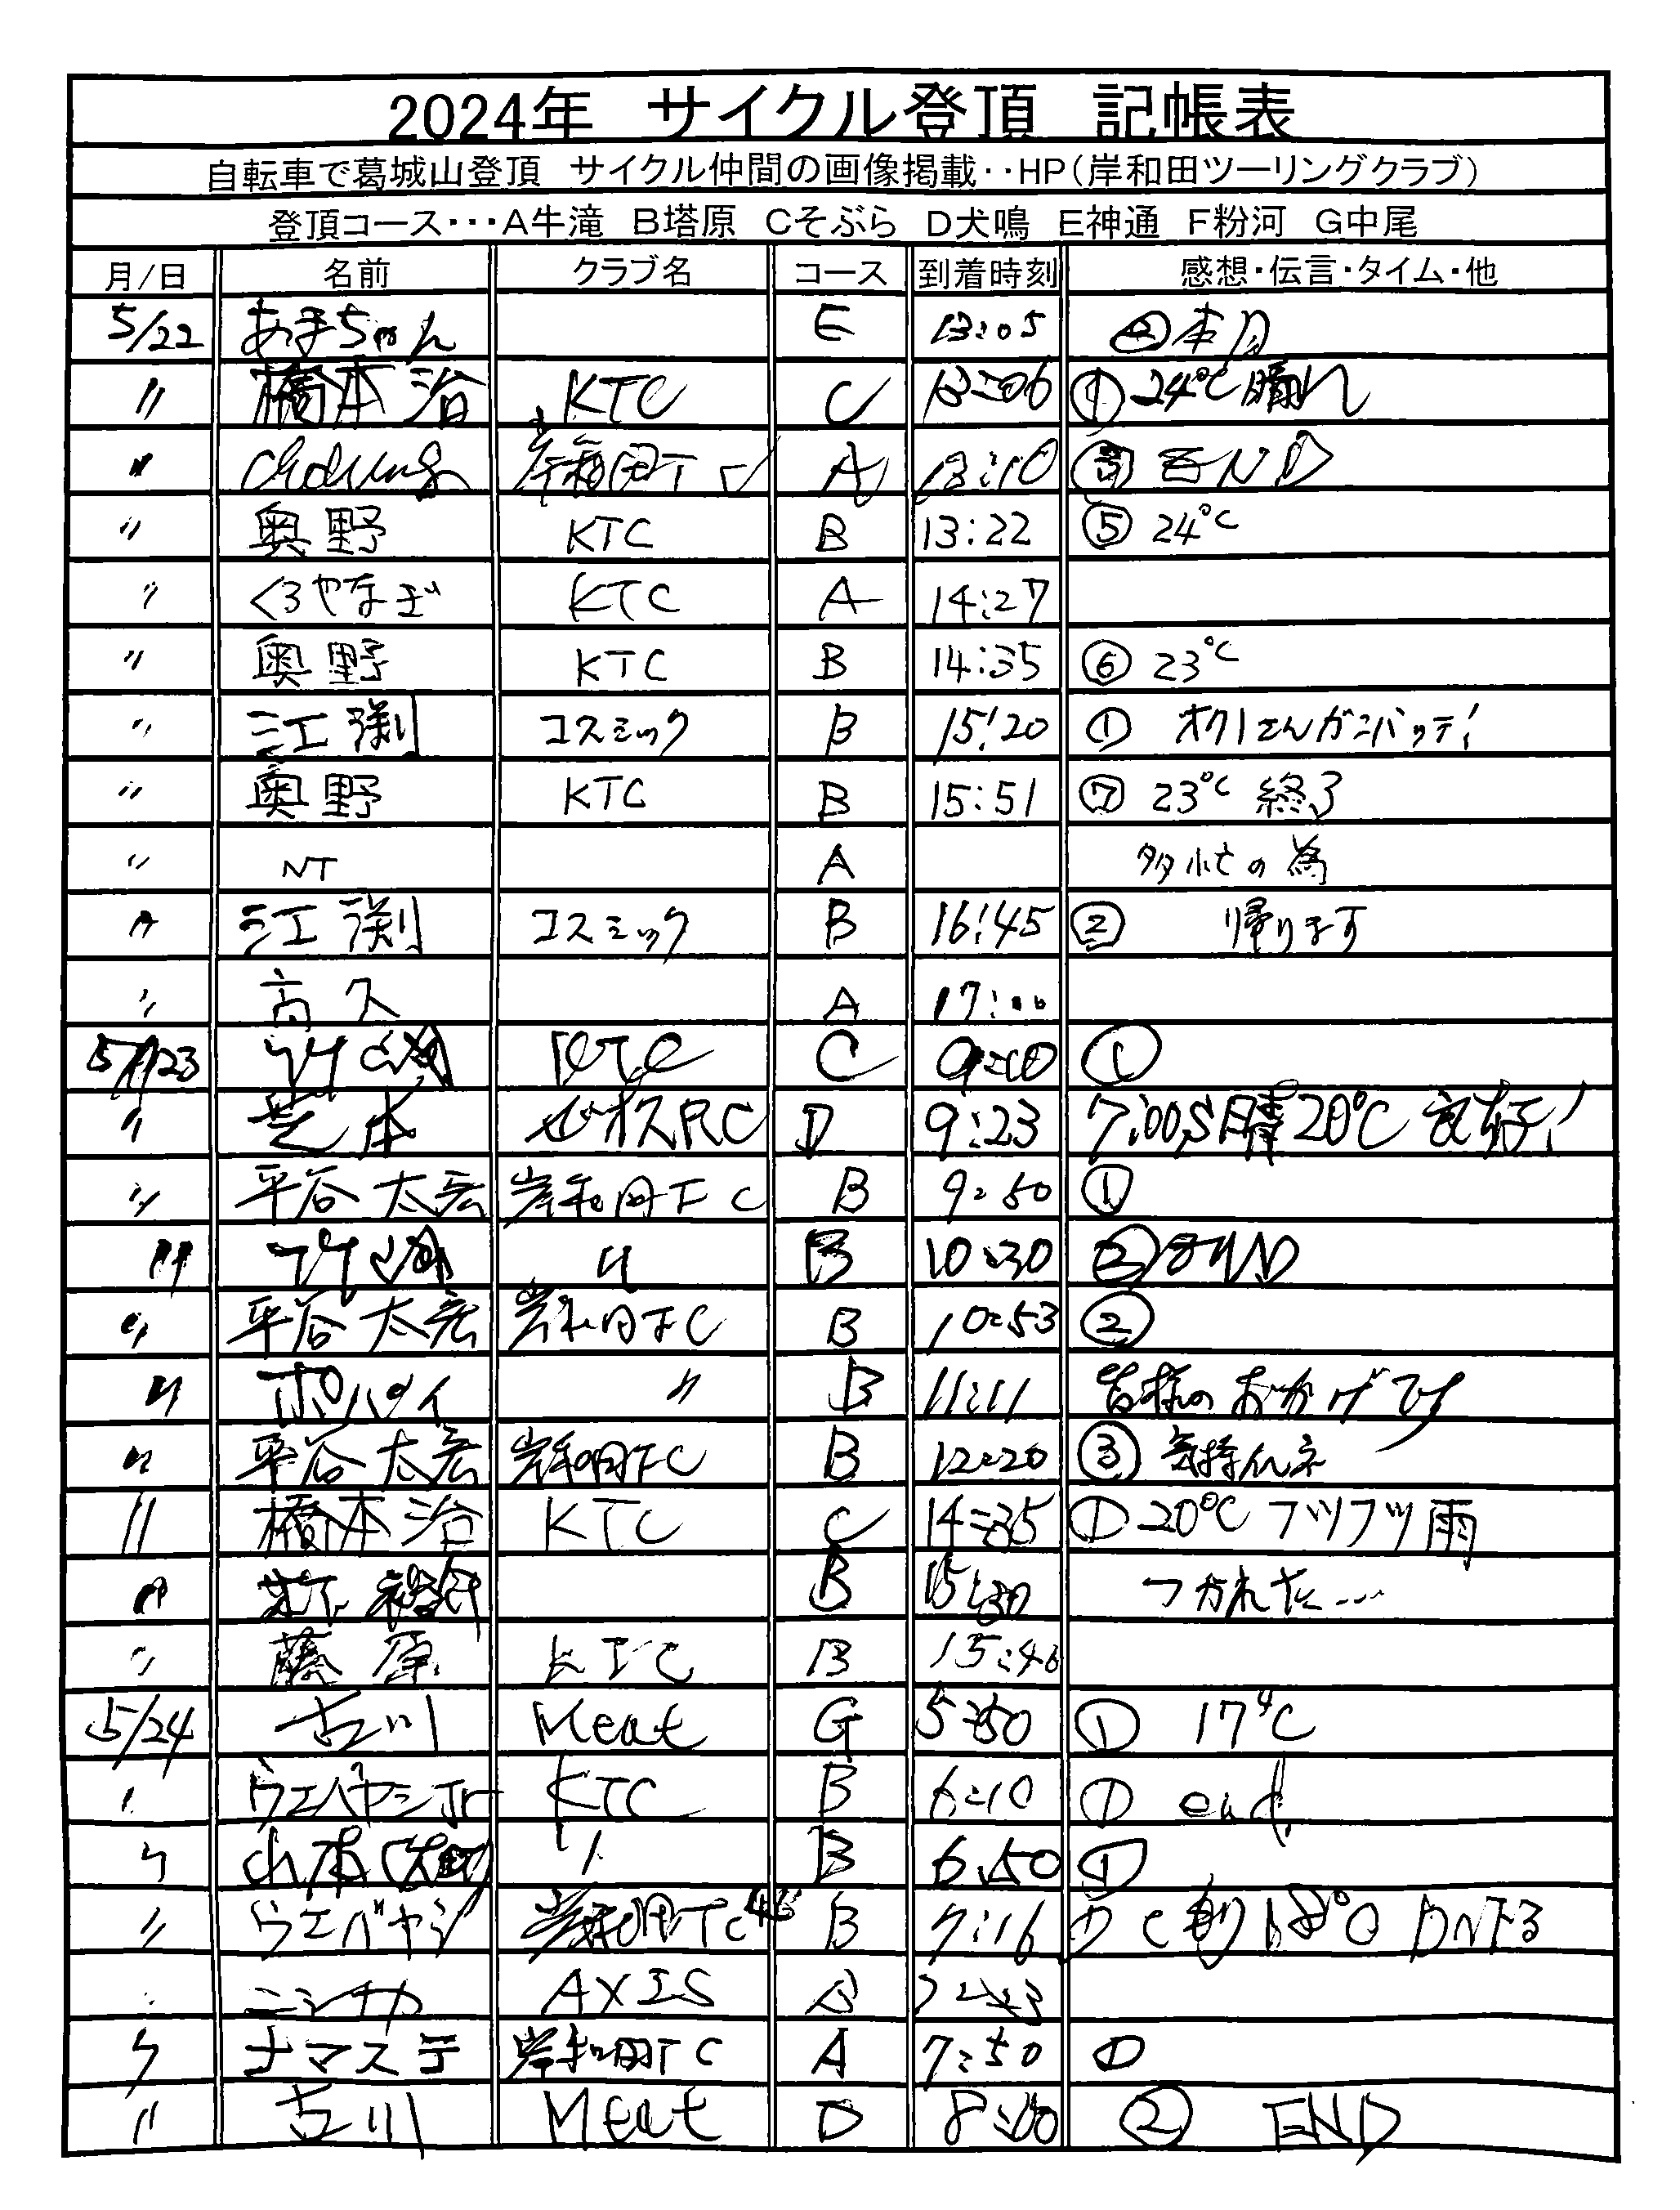 2024年 サイクル登頂 記帳表
自転車で葛城山登頂 サイクル仲間の画像掲載‥HP(岸和田ツーリングクラブ)
登頂コース・・・A牛滝 B塔原 Cそぶら D犬鳴 E神通 F粉河 G中尾
月/日 名前 クラブ名 コース 到着時刻 感想・伝言・タイム・他
5/22 あまちゃん E 13:05 ②本目
〃 橋本治 KTC C 13:06 ① 24℃ 晴れ
〃 岸和田TC A 13:10 ③ END
〃 奥野 KTC B 13:22 ⑤ 24℃
〃 くろやなぎ KTC A 14:27
〃 奥野 KTC B 14:35 ⑥ 23℃
〃 江渕 コスミック B 15:20 ① オクノさんガンバッテ!
〃 奥野 KTC B 15:51 ⑦ 23℃ 終了
〃 NT A 多忙の為
〃 江渕 コスミック B 16:45 ② 帰ります
〃 高久 A 17:00
5/23 KTC C 9:00 ①
〃 芝本 ゼオスRC D 9:23 7:00S 晴 20℃ 良好!
〃 平谷 太宏 岸和田TC B 9:50 ①
〃 〃 B 10:30 ② END
〃 平谷 太宏 岸和田TC B 10:53 ②
〃 ポパイ 〃 B 11:11 皆様のおかげです
〃 平谷 太宏 岸和田TC B 12:20 ③ 気持イイネ
〃 橋本治 KTC C 14:35 ① 20℃ フツフツ雨
〃 B 15:30 つかれた…
〃 藤原 KTC B 15:46
5/24 古川 Meat G 5:50 ① 17℃
〃 ウエバヤシJr KTC B 6:10 ① end
〃 山本 〃 B 6:50 ①
〃 ウエバヤシ 岸和田TC B 7:16 ① 18℃
AXIS
〃 ナマステ 岸和田TC A 7:50 ①
〃 古川 Meat D 8:00 ② END